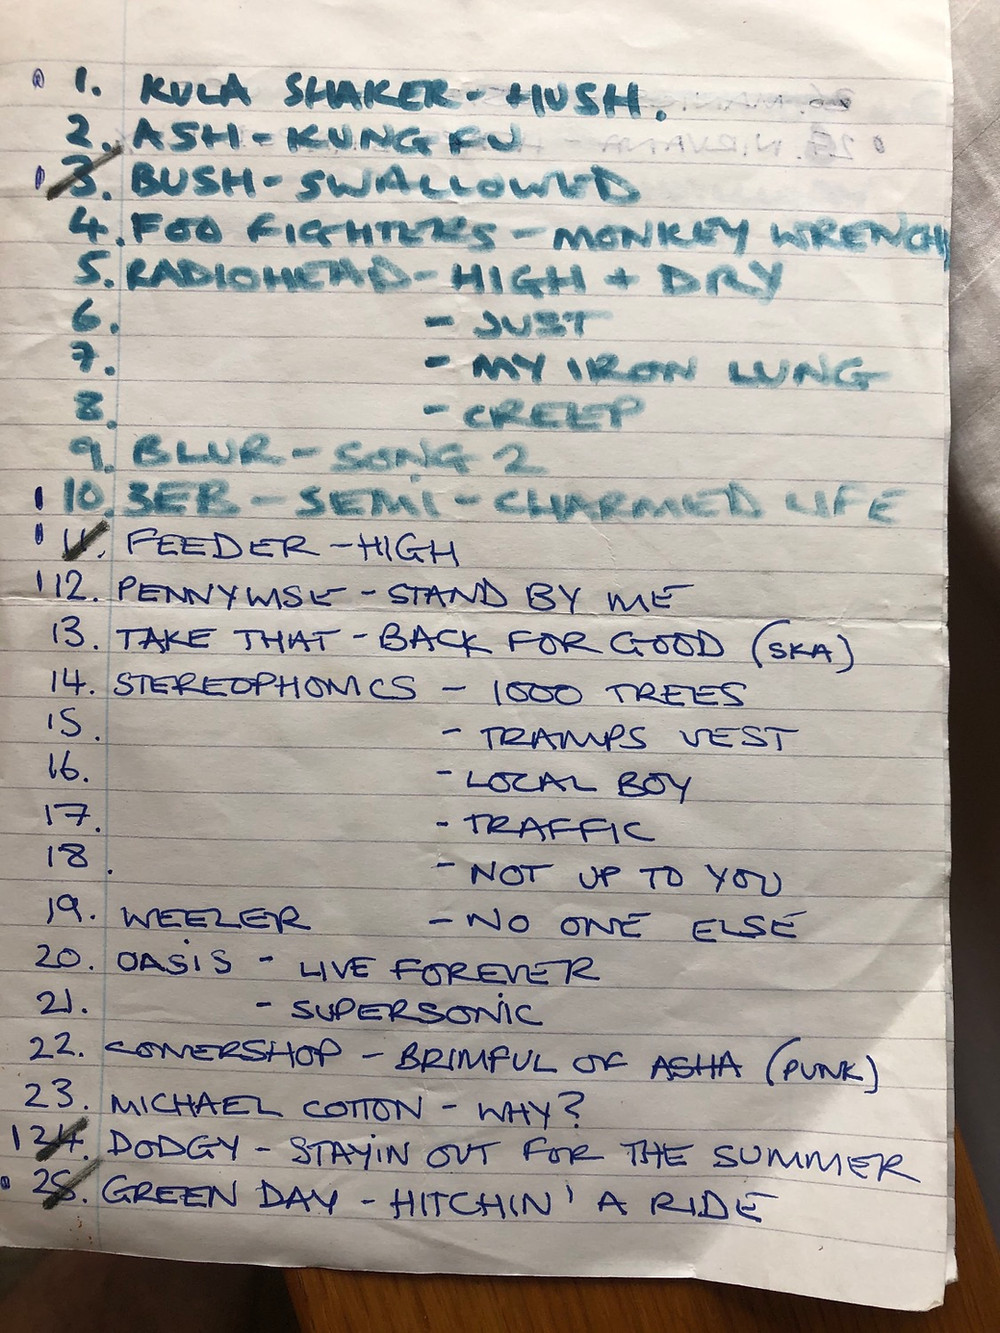 1. KULA SHAKER - HUSH.
2. ASH - KUNG FU
3. BUSH - SWALLOWED
4. FOO FIGHTERS - MONKEY WRENCH
5. RADIOHEAD - HIGH + DRY
6. - JUST
7. - MY IRON LUNG
8. - CREEP
9. BLUR - SONG 2
10. 3EB - SEMI - CHARMED LIFE
11. FEEDER - HIGH
12. PENNYWISE - STAND BY ME
13. TAKE THAT - BACK FOR GOOD (SKA)
14. STEREOPHONICS - 1000 TREES
15. - TRAMPS VEST
16. - LOCAL BOY
17. - TRAFFIC
18. - NOT UP TO YOU
19. WEEZER - NO ONE ELSE
20. OASIS - LIVE FOREVER
21. - SUPERSONIC
22. CONERSHOP - BRIMFUL OF ASHA (PUNK)
23. MICHAEL COTTON - WHY?
24. DODGY - STAYIN OUT FOR THE SUMMER
25. GREEN DAY - HITCHIN' A RIDE